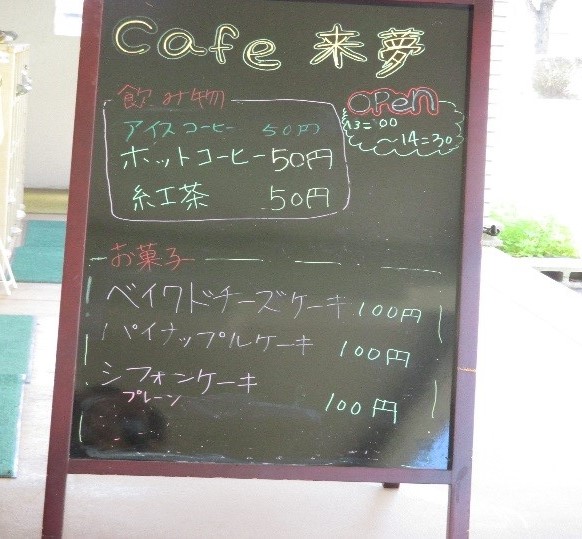 Cafe 来夢
飲み物
OPEN
13=00
~14=30
アイスコーヒー 50円
ホットコーヒー 50円
紅茶 50円
お菓子
ベイクドチーズケーキ 100円
パイナップルケーキ 100円
シフォンケーキ
プレーン
100円